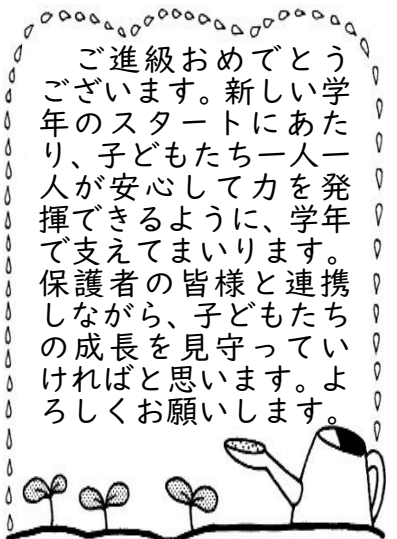 ご進級おめでとう
ございます。新しい学
年のスタートにあた
り、子どもたち一人一
人が安心して力を発
揮できるように、学年
で支えてまいります。
保護者の皆様と連携
しながら、子どもたち
の成長を見守ってい
ければと思います。よ
ろしくお願いします。